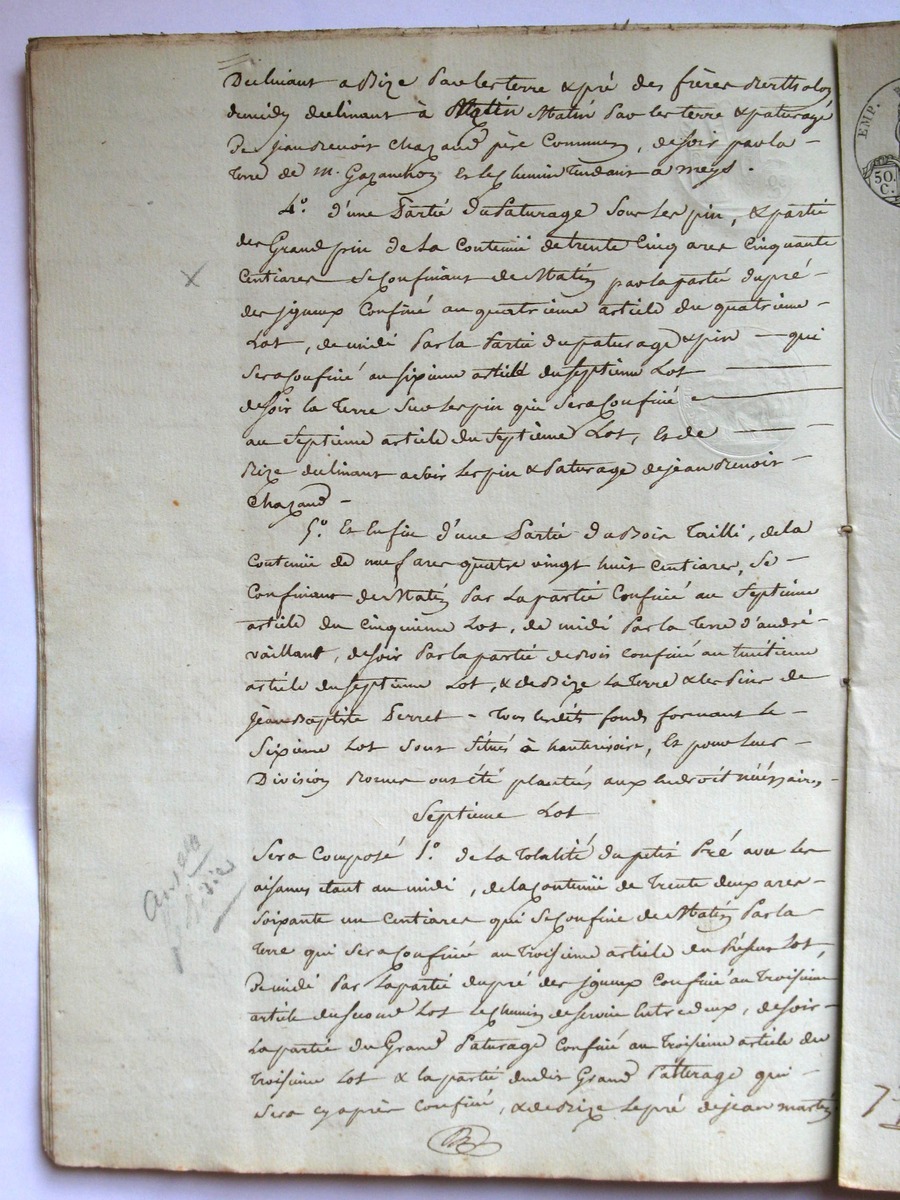 Declinant a Bize Par les terre & pré des frères Bertholoy
de midy declinant à Matin Matin Par les terre & paturage
De jean Benoit Chazaud père Commun, de soir par la
Terre de M. Gazanchon et le chemin Tendant à meys.
4.° d'une Partie du Paturage Sous Les pin, & partie
des Grand pin de la Contenüe de trente Cinq ares Cinquante
Centiares Se Confinant de Matin par la partie du pré
des jqueux Confiné au quatrieme article du quatrieme
Lot, de midi Par la Partie du paturage & pin qui
Sera Confiné au sixieme article du septieme Lot
de soir la Terre Sur Les pin qui Sera Confiné
au Septieme article du Septieme Lot, et de
Bize declinant a soir Les pin & Paturage de jean Benoit
Chazaud
5.° Et Enfin d'une Partie du Bois Tailli, de la
Contenüe de neuf ares quatre vingt huit Centiares, Se
Confinant de Matin Par La partie Confiné au Septieme
article du Cinquieme Lot, de midi Par la Terre d'andré
vaillant, de soir Par la partie de Bois Confiné au huitieme
article du septieme Lot, & de Bize La Terre & les Pins de
jean Baptiste Perret - Tous lesdits fonds formant Le
Sixieme Lot Sont Situés à hauterivoire, Et pour Leur
Division Bornes ont été plantées aux endroit nécéssaires
Septieme Lot
Sera Composé 1.° de La Totalité du petit Pré avec Les
aisances etant au midi, de la Contenüe de Trente deux ares
Soixante un Centiares qui Se Confine de Matin Par la
Terre qui Sera Confiné au Troisieme article du Présent Lot,
De midi Par La partie du pré des jqueux Confiné au Troisieme
article du second Lot Le Chemin de service Entre deux, de soir
La partie du Grand Paturage Confiné au Troisieme article du
Troisieme Lot & la partie dudit Grand Patturage qui
Sera cy après Confiné, & de Bize Le pré de jean martin
EMP.
50.
C.